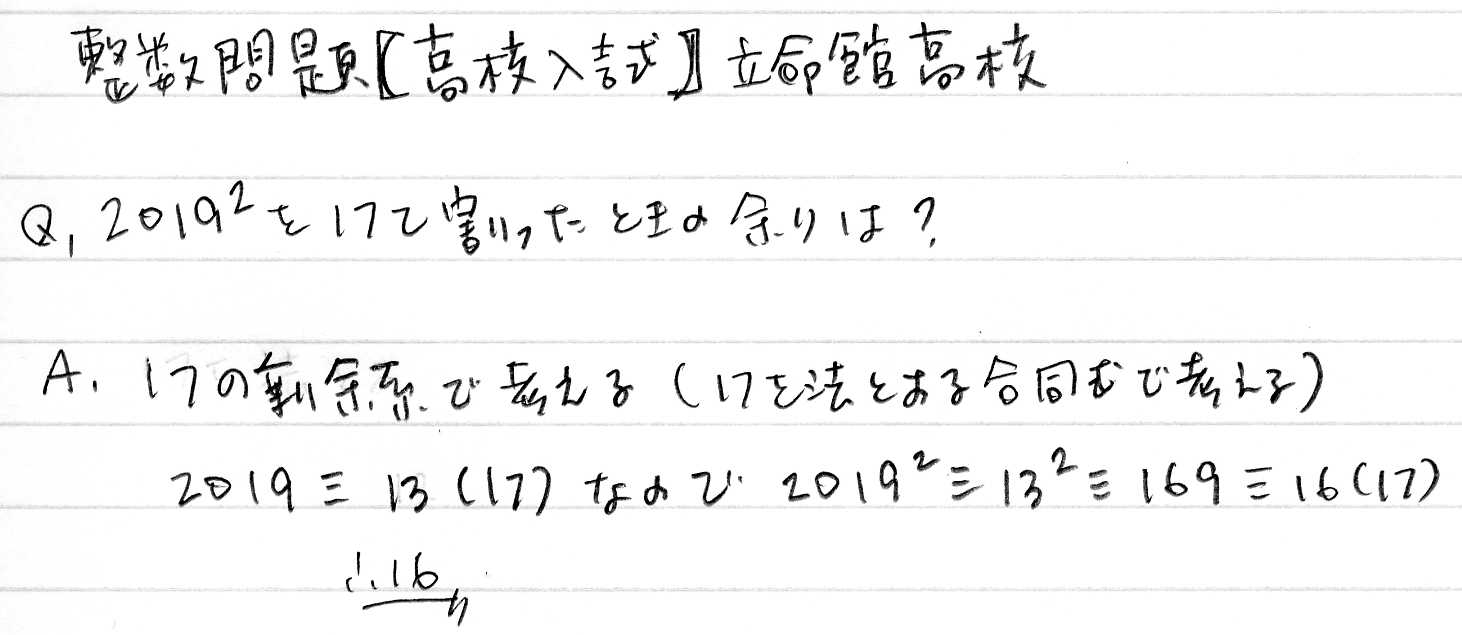 整数問題【高校入試】立命館高校
Q. 2019²を17で割ったときの余りは?
A. 17の剰余系で考える(17を法とする合同式で考える)
2019≡13(17)なので 2019²≡13²≡169≡16(17)
∴16